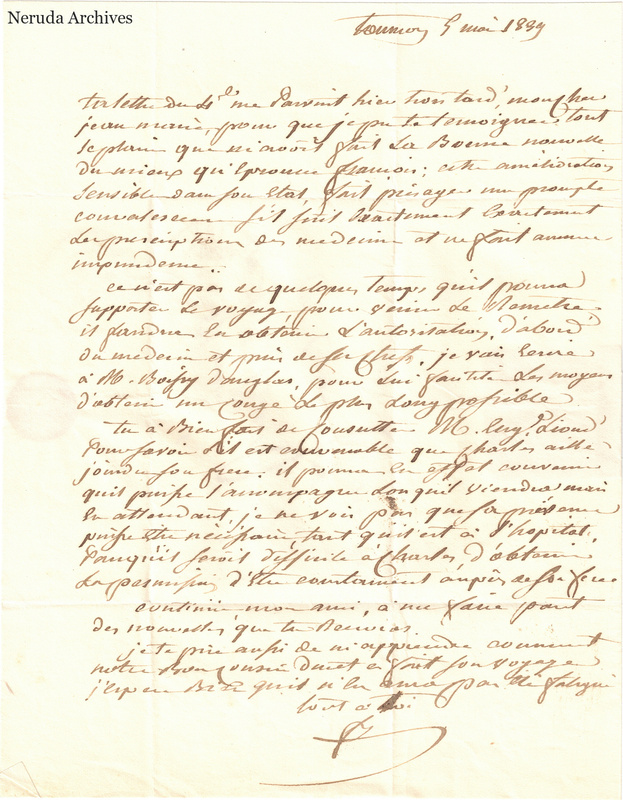 Neruda Archives
Tournon 5 mai 1839
ta lettre du 4 me Parvint hier trop tard, mon cher
jean marie, pour que je pu te temoigner tout
le plaisir que m'avoit fait La Bonne nouvelle
du mieux qu'Eprouve françois; cette amélioration
Sensible dans son Etat, fait présager une prompte
convalescence s'il suit Exactement Exactement
Les prescriptions des medecins et ne fait aucune
imprudence.
ce n'est pas de quelques temps qu'il pourra
supporter Le voyage, pour venir Se Remettre,
il faudra En obtenir L'autorisation, d'abord
du medecin et puis de ses chefs. je vais Ecrire
à M. Boissy d'anglas, pour Lui Les moyens
d'obtenir un congé Le plus Long possible
tu à Bien fait de consulter M.
Pour savoir s'il est convenable que charles aille
joindre son frere. il pourra En effet convenir
qu'il puisse l'accompagner Lorsqu'il viendra mais
En attendant, je ne vois pas que sa présence
puisse Etre nécessaire tant qu'il est à l'hopital,
Puisqu'il seroit difficile a charles d'obtenir
La permission d'Etre constament auprès de son frere
continue mon ami, à me faire part
des nouvelles que tu Recevras
je te prie aussi de m'apprendre comment
notre Bon cousin a fait son voyage
j'espere Bien qu'il n'En aura pas été fatigué
tout à toi